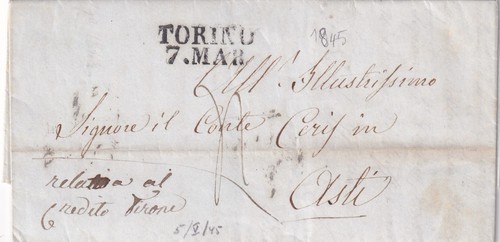 TORINO
7. MAR
1845
All'. Illustrissimo
Signore il Conte Ceris in
Asti
relativa al
Credito Pirone
5/X/45